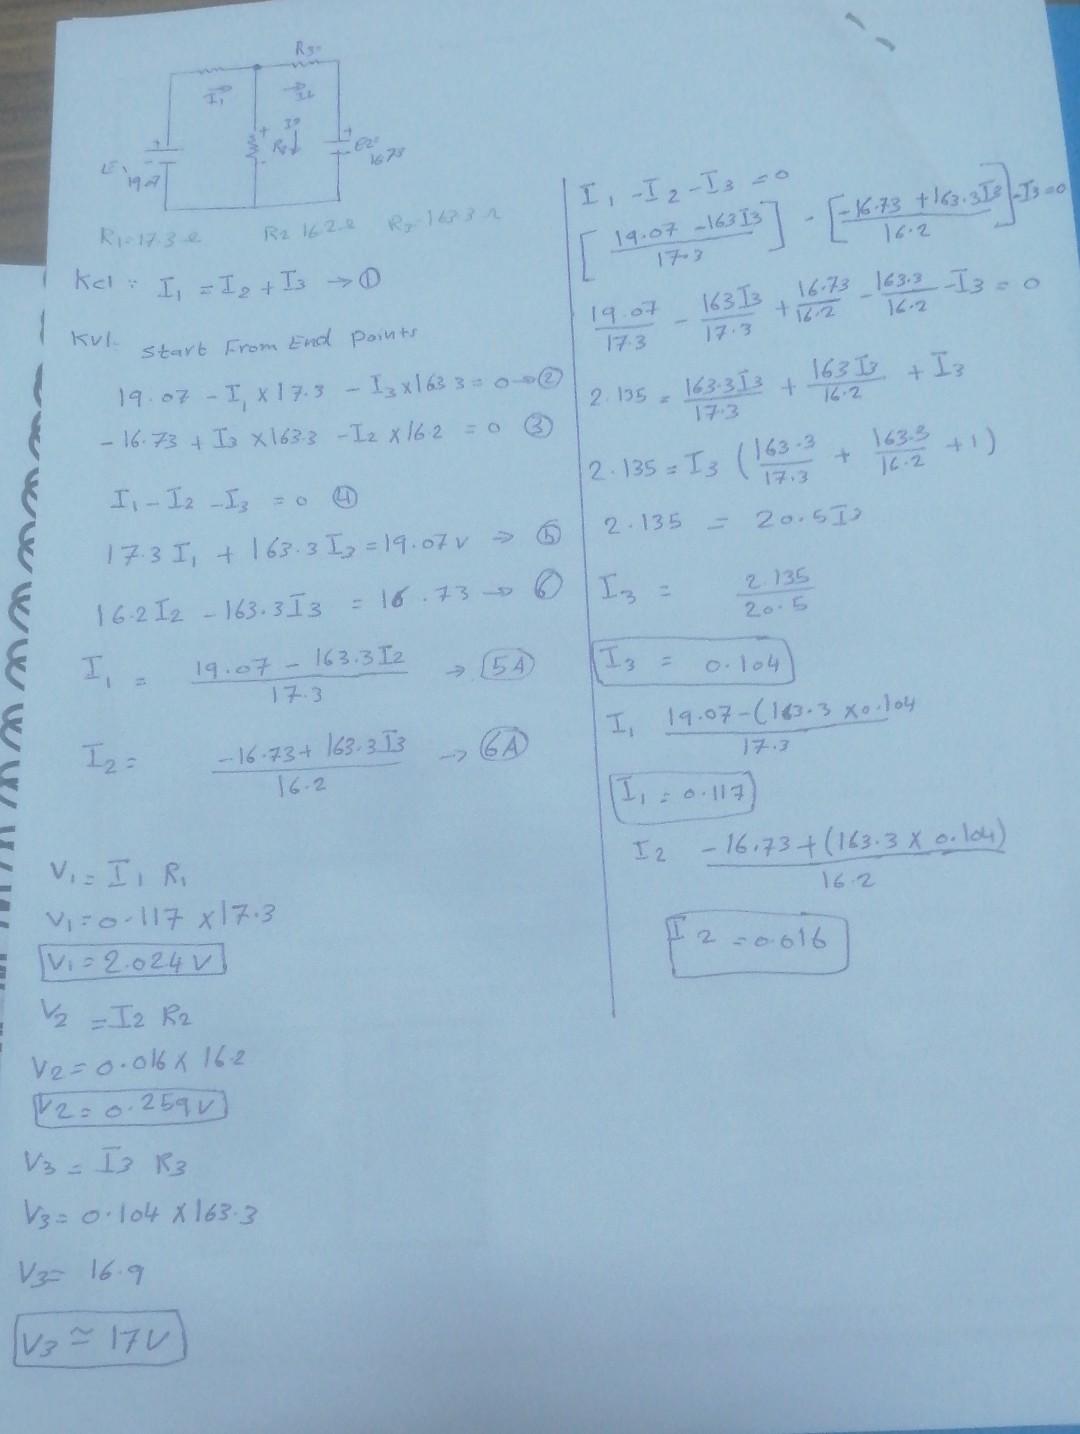 R3
I1
I2
I3
R2
E1
19.07
E2
16.73
R1=17.3 Ω R2 16.2 Ω R3=163.3 Ω
Kcl : I1 = I2 + I3 → ①
Kvl. Start From End Points
19.07 - I1 x 17.3 - I3 x 163.3 = 0 → ②
- 16.73 + I3 x 163.3 - I2 x 16.2 = 0 ③
I1 - I2 - I3 = 0 ④
17.3 I1 + 163.3 I3 = 19.07 v → ⑤
16.2 I2 - 163.3 I3 = 16.73 → ⑥
I1 = 19.07 - 163.3 I2 / 17.3 → 5A
I2 = -16.73 + 163.3 I3 / 16.2 → 6A
V1 = I1 R1
V1 = 0.117 x 17.3
V1 = 2.024 V
V2 = I2 R2
V2 = 0.016 x 16.2
V2 = 0.259 V
V3 = I3 R3
V3 = 0.104 x 163.3
V3 = 16.9
V3 ≃ 17V
I1 - I2 - I3 = 0
[19.07 - 163 I3 / 17.3] - [-16.73 + 163.3 I3 / 16.2] - I3 = 0
19.07 / 17.3 - 163 I3 / 17.3 + 16.73 / 16.2 - 163.3 / 16.2 - I3 = 0
2.135 = 163.3 I3 / 17.3 + 163 I3 / 16.2 + I3
2.135 = I3 (163.3 / 17.3 + 163.3 / 16.2 + 1)
2.135 = 20.5 I3
I3 = 2.135 / 20.5
I3 = 0.104
I1 19.07 - (163.3 x 0.104 / 17.3
I1 = 0.117
I2 -16.73 + (163.3 x 0.104) / 16.2
I2 = 0.016